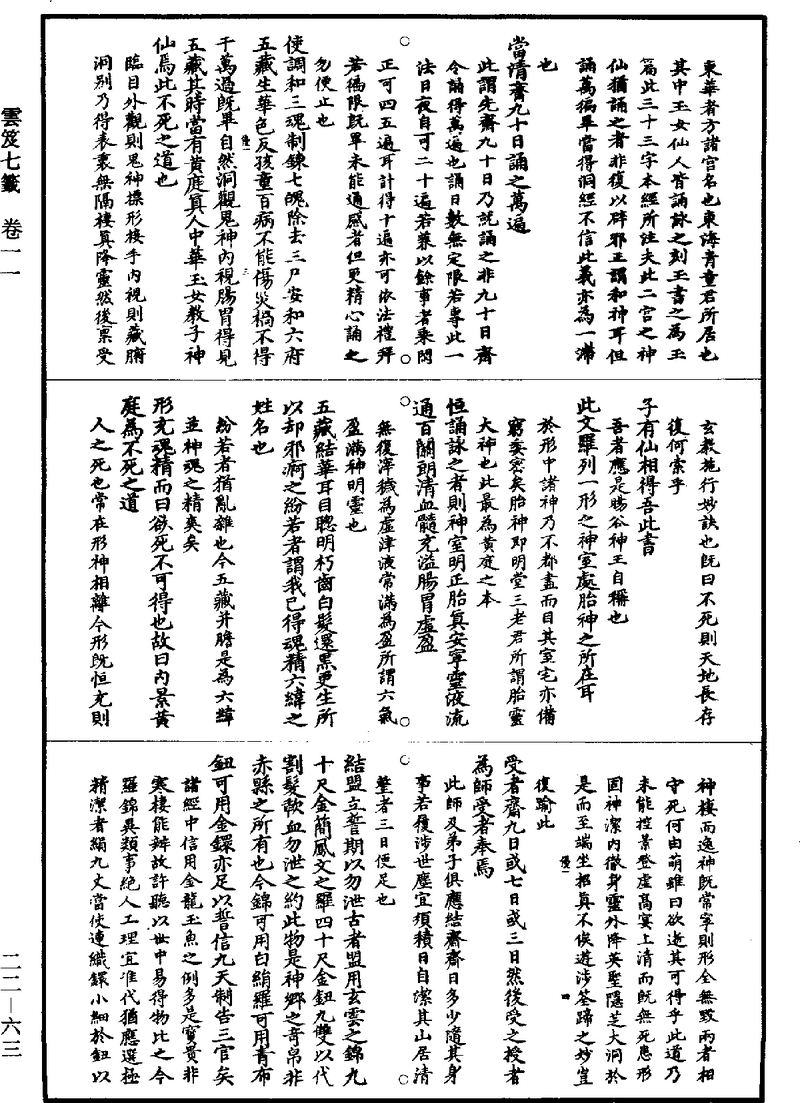 東華者方諸宮名也東海青童君所居也
其中玉女仙人皆誦詠之刻玉書之為玉
篇此三十三字本經所注夫此二宮之神
仙猶誦之者非復以辟邪正謂和神耳但
誦萬徧畢當得洞經不信此義亦為一滯
也
當清齋九十日誦之萬遍
此謂先齋九十日乃說誦之非九十日齋
令誦得萬遍也誦日數無定限若專此一
法日夜自可二十遍若兼以餘事者乘閑
正可四五遍耳計得十遍亦可依法禮拜
若徧限既畢未能通感者但更精心誦之
勿便止也
使調和三魂制鍊七魄除去三尸安和六府
五藏生華色反孩童百病不能傷災禍不得
干萬過既畢自然洞觀鬼神內視腸胃得見
五藏其時當有黃庭真人中華玉女教子神
仙焉此不死之道也
臨目外觀則鬼神摽形接手內視則藏腑
洞別乃得表裏無隔棲真降靈然後稟受
玄教施行妙訣也既曰不死則天地長存
復何索乎
子有仙相得吾此書
吾者應是暘谷神王自稱也
此文羅列一形之神室處胎神之所在耳
於形中諸神乃不都盡而目其室宅亦備
窮委密矣胎神即明堂三老君所謂胎靈
大神也此最為黃庭之本
恒誦詠之者則神室明正胎真安寧靈液流
通百關朗清血髓充溢腸胃虛盈
無復滓穢為虛津液常滿為盈所謂六氣
盈滿神明靈也
五藏結華耳目聰明朽齒白髮還黑更生所
以却邪痾之紛若者謂我已得魂精六緯之
姓名也
紛若者猶亂雜也今五藏并膽是為六緯
並神魂之精爽矣
形充魂精而曰欲死不可得也故曰內景黃
庭為不死之道
人之死也常在形神相離今形既恒充則
神棲而逸神既常寧則形全無毀兩者相
守死何由萌雖曰欲逝其可得乎此道乃
未能控景登虛高宴上清而既無死患形
固神潔內徹身靈外降英聖隱芝大洞於
是而至端坐招真不俟遊涉荃蹄之妙豈
復踰此
受者齋九日或七日或三日然後受之授者
為師受者奉焉
此師及弟子俱應結齋齋日多少隨其身
事若履涉世塵宜須積日自潔其山居清
整者三日便足也
結盟立誓期以勿泄古者盟用玄雲之錦九
十尺金簡鳳文之羅四十尺金鈕九雙以代
割髮歃血勿泄之約此物是神鄉之奇帛非
赤縣之所有也今錦可用白絹羅可用青布
鈕可用金鐶亦足以誓信九天制告三官矣
諸經中信用金龍玉魚之例多是寶貴非
寒棲能辨故許聽以世中易得物比之今
羅錦異類事絕人工理宜准代猶應選極
精潔者絹九丈當使連織鐶小細於鈕以
雲笈七籤　卷一一
二二—六三